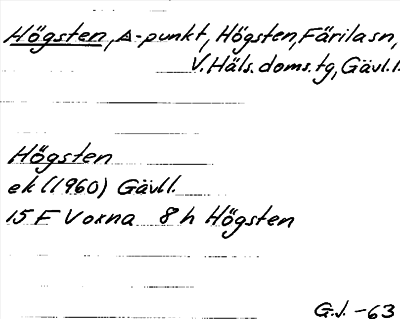 Högsten, Δ-punkt, Högsten, Färila sn,
V. Häls. doms. tg, Gävl. l.
Högsten
ek (1960) Gävll.
15 F Voxna 8 h Högsten
G.J. -63